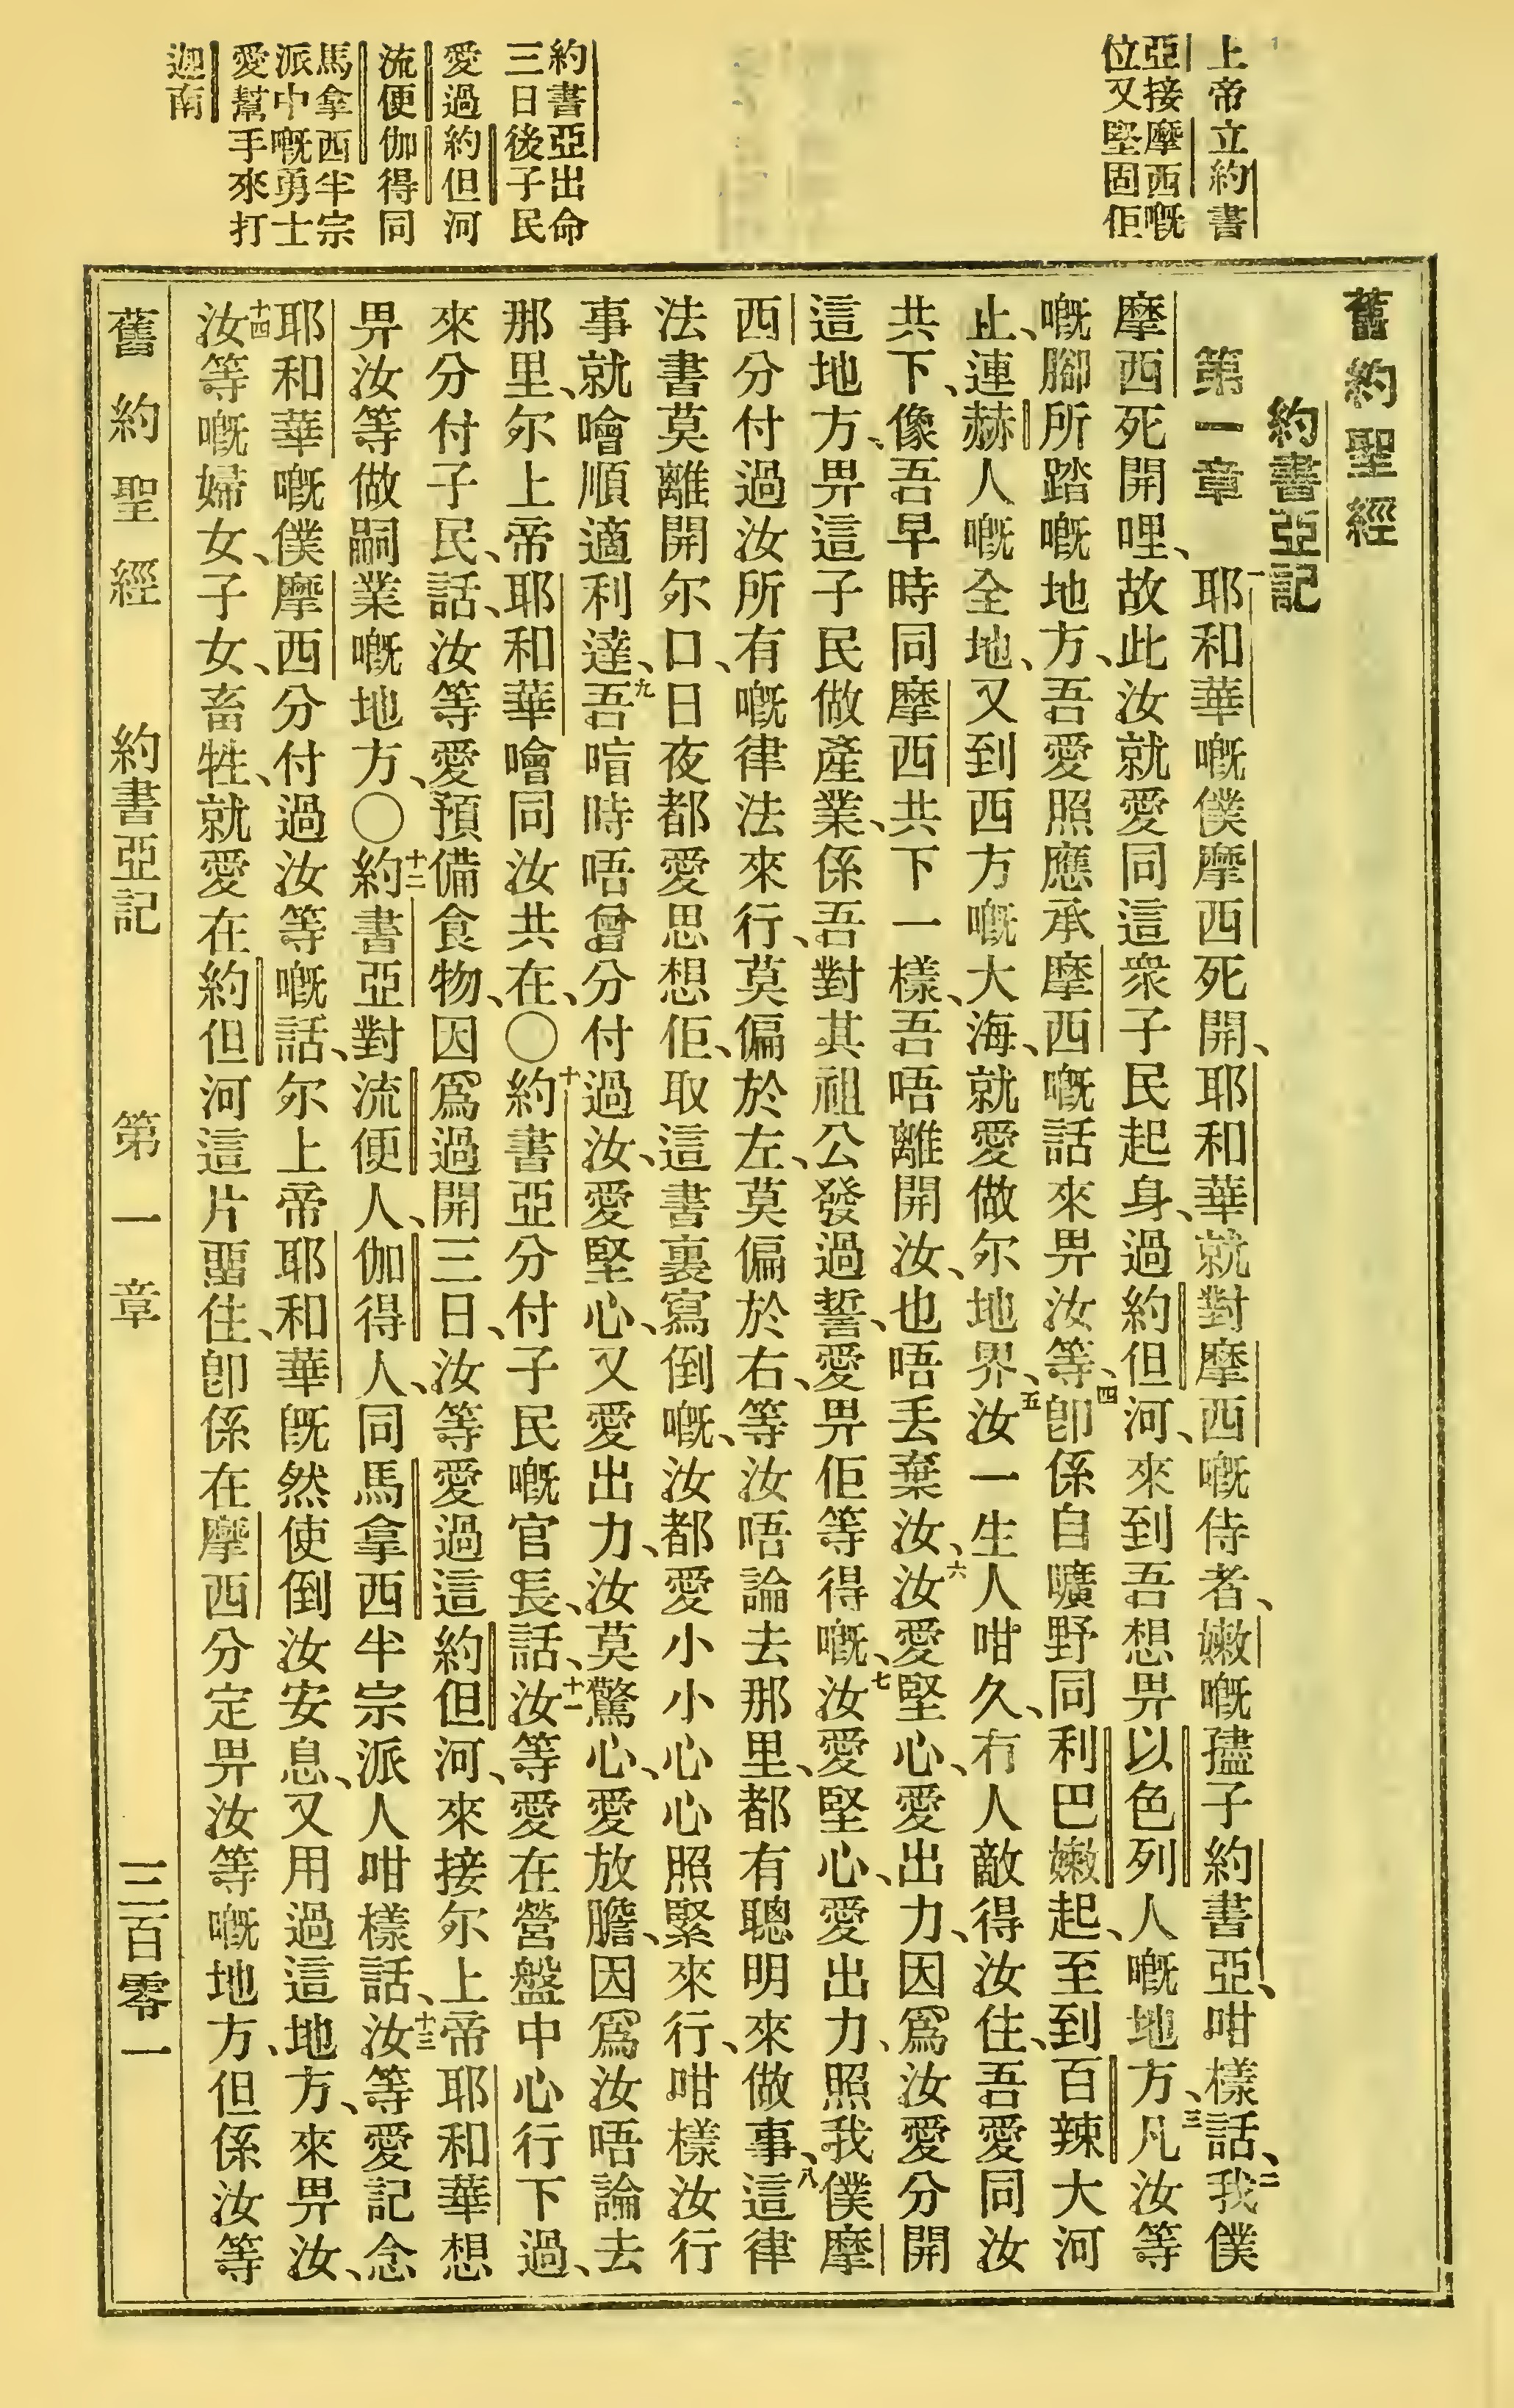 上帝立約書
亞接摩西嘅
位又堅固佢
約書亞出命
三日後子民
愛過約但河
流便伽得同
馬拿西半宗
派中嘅勇士
愛幫手來打
迦南
舊約聖經
約書亞記
第一章 一耶和華嘅僕摩西死開、耶和華就對摩西嘅侍者、嫩嘅孻子約書亞、咁樣話、二我僕
摩西死開哩、故此汝就愛同這衆子民起身、過約但河、來到吾想畀以色列人嘅地方、三凡汝等
嘅腳所踏嘅地方、吾愛照應承摩西嘅話來畀汝等、四卽係自曠野同利巴嫩起、至到百辣大河
止、連赫人嘅全地、又到西方嘅大海、就愛做尔地界、五汝一生人咁久、冇人敵得汝住、吾愛同汝
共下、像吾早時同摩西共下一樣、吾唔離開汝、也唔丢棄汝、六汝愛堅心、愛出力、因爲汝愛分開
這地方、畀這子民做產業、係吾對其祖公發過誓、愛畀佢等得嘅、七汝愛堅心、愛出力、照我僕摩
西分付過汝所有嘅律法來行、莫偏於左、莫偏於右、等汝唔論去那里、都有聰明來做事、八這律
法書莫離開尔口、日夜都愛思想佢、取這書裏寫倒嘅、汝都愛小小心心照緊來行、咁樣汝行
事就噲順適利達、九吾唷時唔曾分付過汝、愛堅心、又愛出力、汝莫驚心、愛放膽、因爲汝唔論去
那里、尔上帝耶和華噲同汝共在、〇十約書亞分付子民嘅官長、話、十一汝等愛在營盤中心行下過、
來分付子民、話、汝等愛預備食物、因爲過開三日、汝等愛過這約但河、來接尔上帝耶和華想
畀汝等做嗣業嘅地方、〇十二約書亞對流便人、伽得人、同馬拿西半宗派人咁樣話、十三汝等愛記念
耶和華嘅僕摩西分付過汝等嘅話、尔上帝耶和華旣然使倒汝安息、又用過這地方、來畀汝、
十四汝等嘅婦女、子女、畜牲、就愛在約但河這片歇住、卽係在摩西分定畀汝等嘅地方、但係汝等
舊約聖經 約書亞記 第一章 三百零一